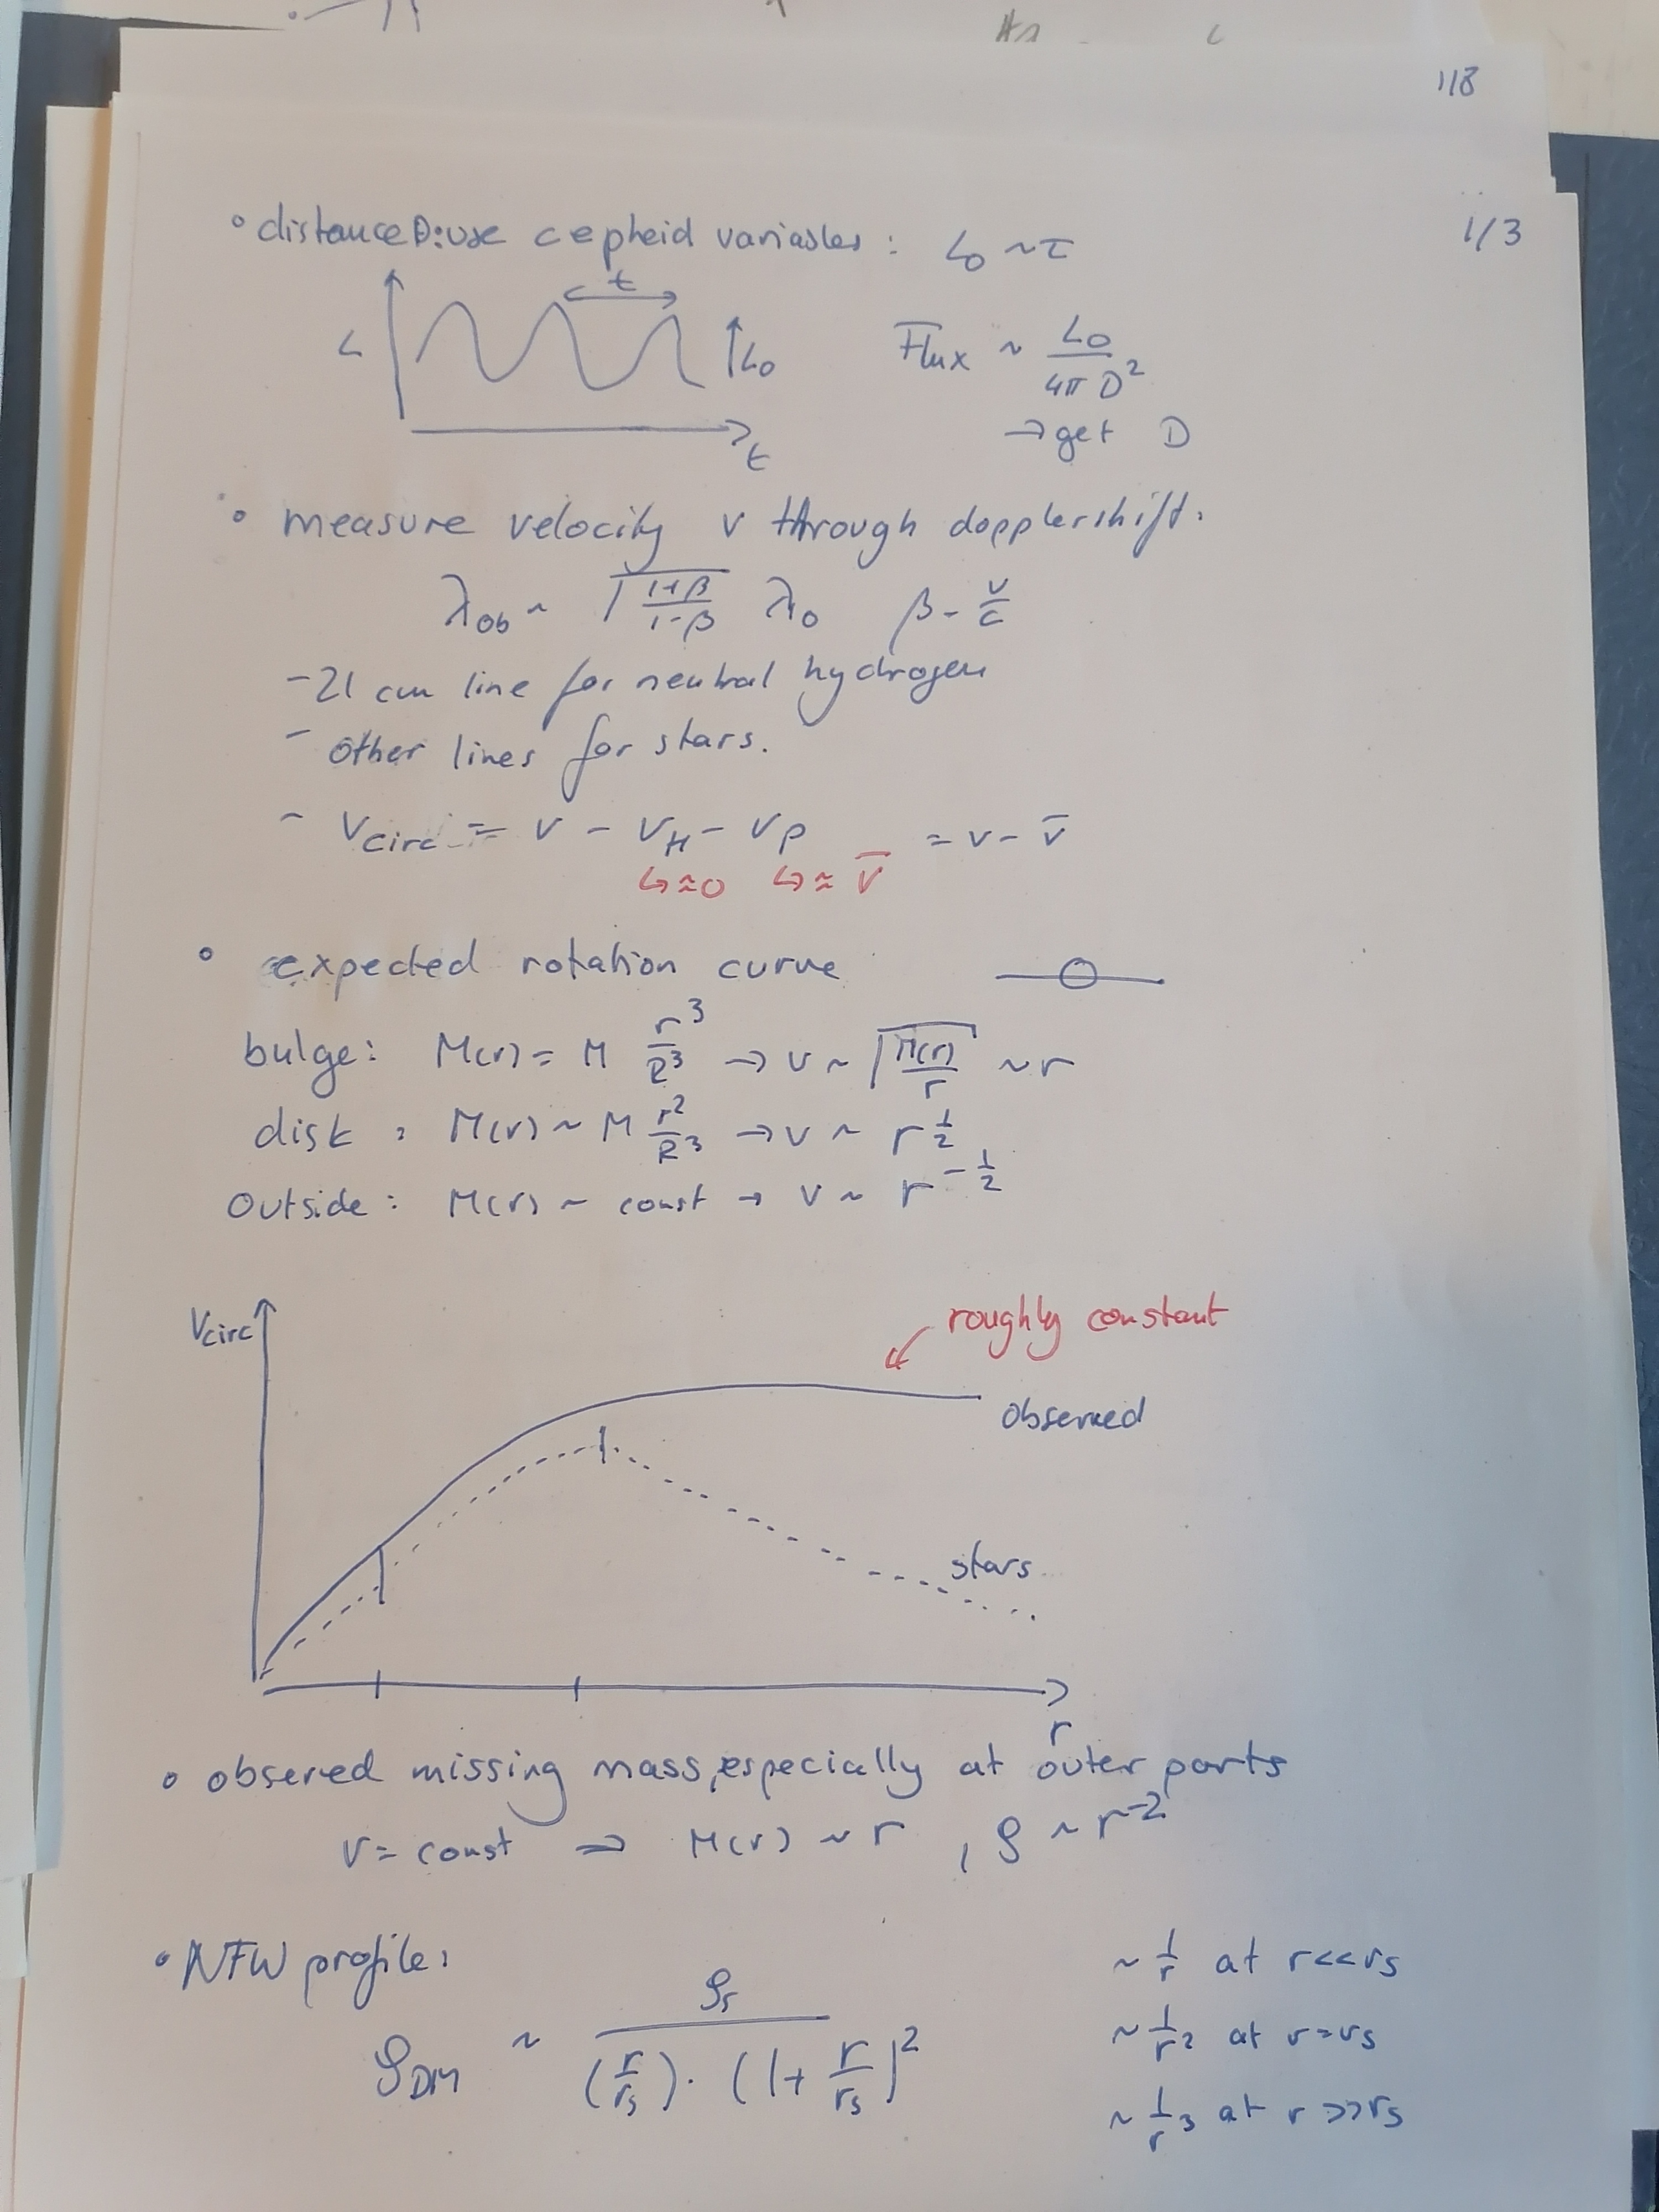 118
1/3
• distance D: use cepheid variables : L₀ ~ τ
t
L
↑L₀
Flux ~ L₀ / 4π D²
t
→ get D
• measure velocity v through dopplershift:
λ_ob ~ √((1+β)/(1-β)) λ₀ β = v/c
- 21 cm line for neutral hydrogen
- other lines for stars.
- V_circ = v - v_H - v_p = v - v̄
↳ ≈ 0 ↳ ≈ v̄
• expected rotation curve
bulge: M(r) = M r³/R³ → v ~ √(M(r)/r) ~ r
disk : M(r) ~ M r²/R³ → v ~ r^(1/2)
outside : M(r) ~ const → v ~ r^(-1/2)
V_circ
roughly constant
observed
stars
r
• observed missing mass, especially at outer parts
v = const ⇒ M(r) ~ r , ρ ~ r⁻²
• NFW profile:
ρ_DM ~ ρ_s / ((r/r_s) · (1 + r/r_s)²)
~ 1/r at r << r_s
~ 1/r² at r = r_s
~ 1/r³ at r >> r_s